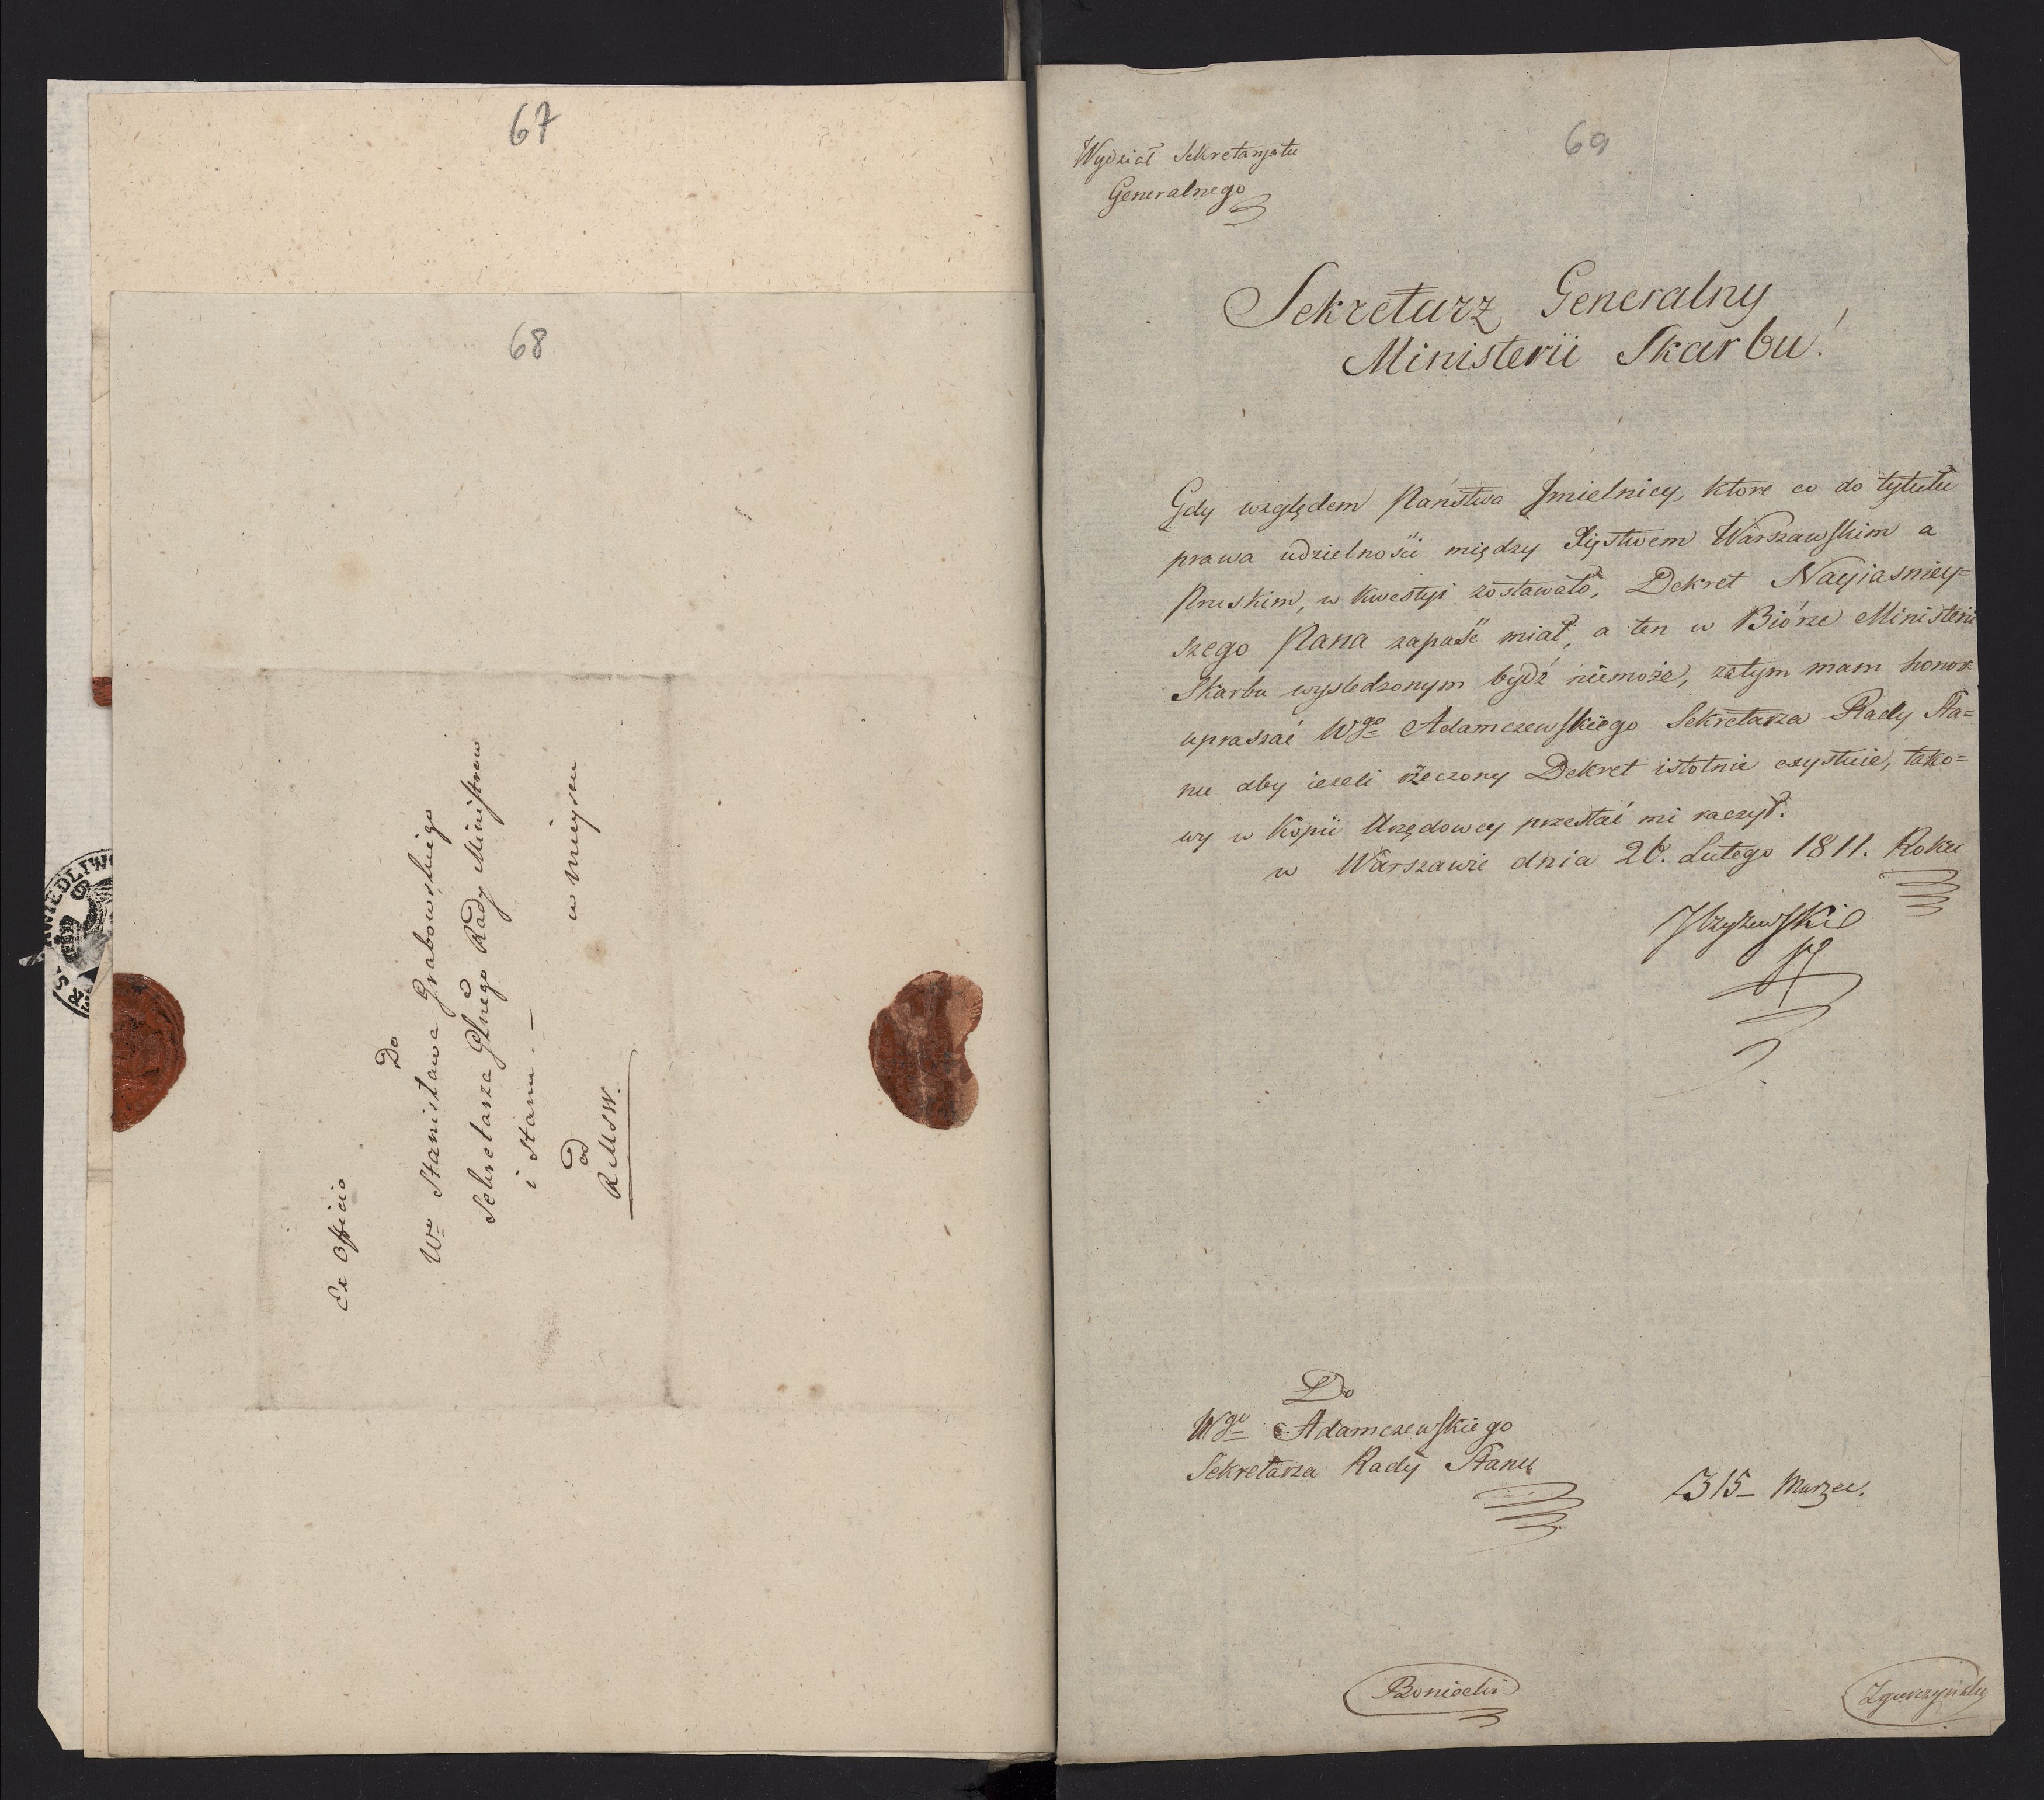 67
68
Ex Officio
Do
Wo Stanisława Grabowskiego
Sekretarza Głnego Rady Ministrow
i Stanu. —
w mieyscu
od
R M S W.
69
Wydział Sekretaryatu
Generalnego
Sekretarz Generalny
Ministerii Skarbu!
Gdy względem Państwa Jmielnicy, ktore co do tytułu
prawa udzielności między Xięstwem Warszawskim a
Pruskim, w kwestyi zostawało, Dekret Nayiasniey=
szego Pana zapaść miał, a ten w Biórze Ministerii
Skarbu wysledzonym bydź niemoże, zatym mam honor
upraszać Wgo Adamczewskiego Sekretarza Rady Sta=
nu aby ieżeli rzeczony Dekret istotnie exystuie, tako=
wy w Kopii Urzędowey przesłać mi raczył.
w Warszawie dnia 26. Lutego 1811. Roku
Do
Wgo Adamczewskiego
Sekretarza Rady Stanu
315 – Marzec.
Boniecki